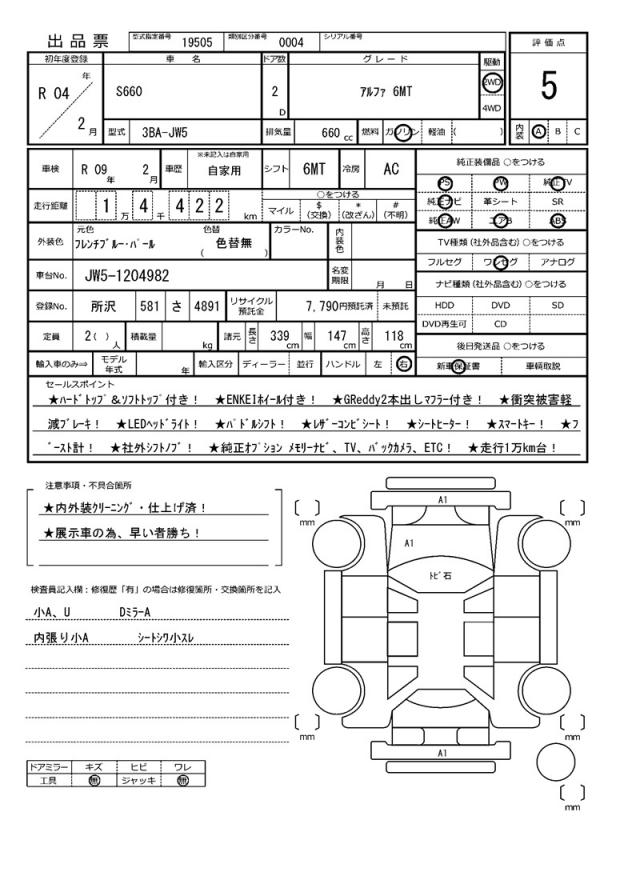 出品票 型式指定番号 19505 類別区分番号 0004 シリアル番号
評価点
5
内装 A B C
初年度登録 車名 ドア数 グレード 駆動
R 04 年 2 月 S660 2 D アルファ 6MT 2WD 4WD
型式 3BA-JW5 排気量 660 cc 燃料 ガソリン 軽油 ( )
車検 R 09 年 2 月 車歴 ※未記入は自家用 自家用 シフト 6MT 冷房 AC
走行距離 1 万 4 千 4 2 2 km ○をつける
マイル $ (交換) * (改ざん) # (不明)
外装色 元色 フレンチブルー・パール 色替 色替無 ( ) カラーNo. 内装色
車台No. JW5-1204982 名変期限 月 日
登録No. 所沢 581 さ 4891 リサイクル預託金 7,790円預託済 未預託
定員 2( ) 人 積載量 kg 諸元 長さ 339 cm 幅 147 cm 高さ 118 cm
輸入車のみ⇒ モデル年式 年 輸入区分 ディーラー 並行 ハンドル 左 右
純正装備品 ○をつける
PS PW 純正TV
純正ナビ 革シート SR
純正AW エアB ABS
TV種類 (社外品含む) ○をつける
フルセグ ワンセグ アナログ
ナビ種類 (社外品含む) ○をつける
HDD DVD SD
DVD再生可 CD
後日発送品 ○をつける
新車保証書 車輌取説
セールスポイント
★ハードトップ&ソフトトップ付き! ★ENKEIホイール付き! ★GReddy2本出しマフラー付き! ★衝突被害軽
減ブレーキ! ★LEDヘッドライト! ★パドルシフト! ★レザーコンビシート! ★シートヒーター! ★スマートキー! ★フ
ースト計! ★社外シフトノブ! ★純正オプション メモリーナビ、TV、バックカメラ、ETC! ★走行1万km台!
注意事項・不具合箇所
★内外装クリーニング・仕上げ済!
★展示車の為、早い者勝ち!
検査員記入欄:修復歴「有」の場合は修復箇所・交換箇所を記入
小A、U DミラーA
内張り小A シートシワ小スレ
ドアミラー キズ ヒビ ワレ
工具 無 ジャッキ 無
A1
A1
トビ石
A1
[ ] mm
[ ] mm
[ ] mm
[ ] mm
[ ] mm